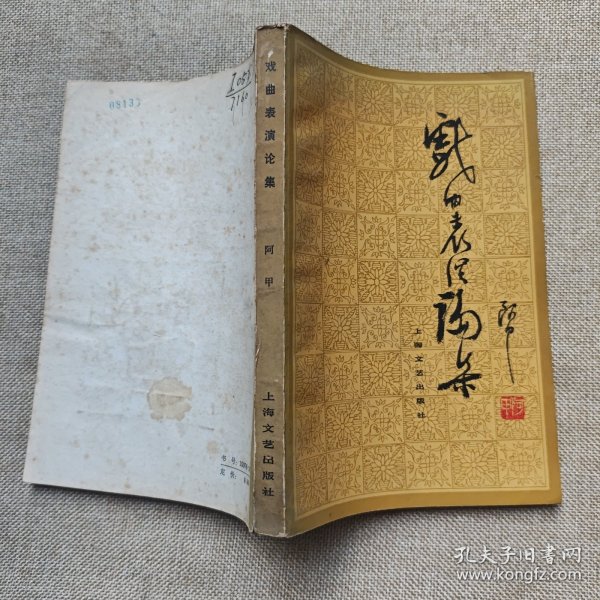 戏曲表演论集
阿甲
上海文艺出版社
戏曲表演论集
阿甲
上海文艺出版社
08133
书号:
定价:
孔夫子旧书网
www.kongfz.com